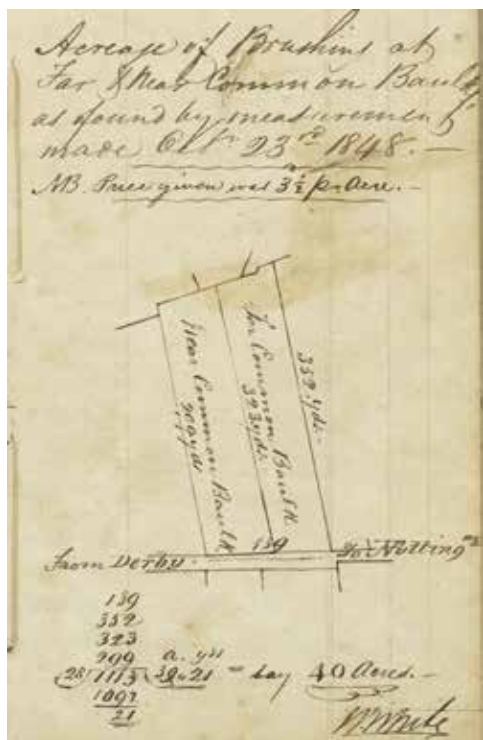 Acreage of Brushing at
Far & Near Common Baulk,
as found by measurement
made Octr 23rd 1848. —
NB. Price given was 3½ p. Acre. —
352 yds.
Far Common Baulk
323 yds.
Near Common Baulk
299 yds
139
From Derby.
To Notting
139
352
323
299 a. yds
(28) 1113 (39 " 21 = say 40 Acres. —
1092
21